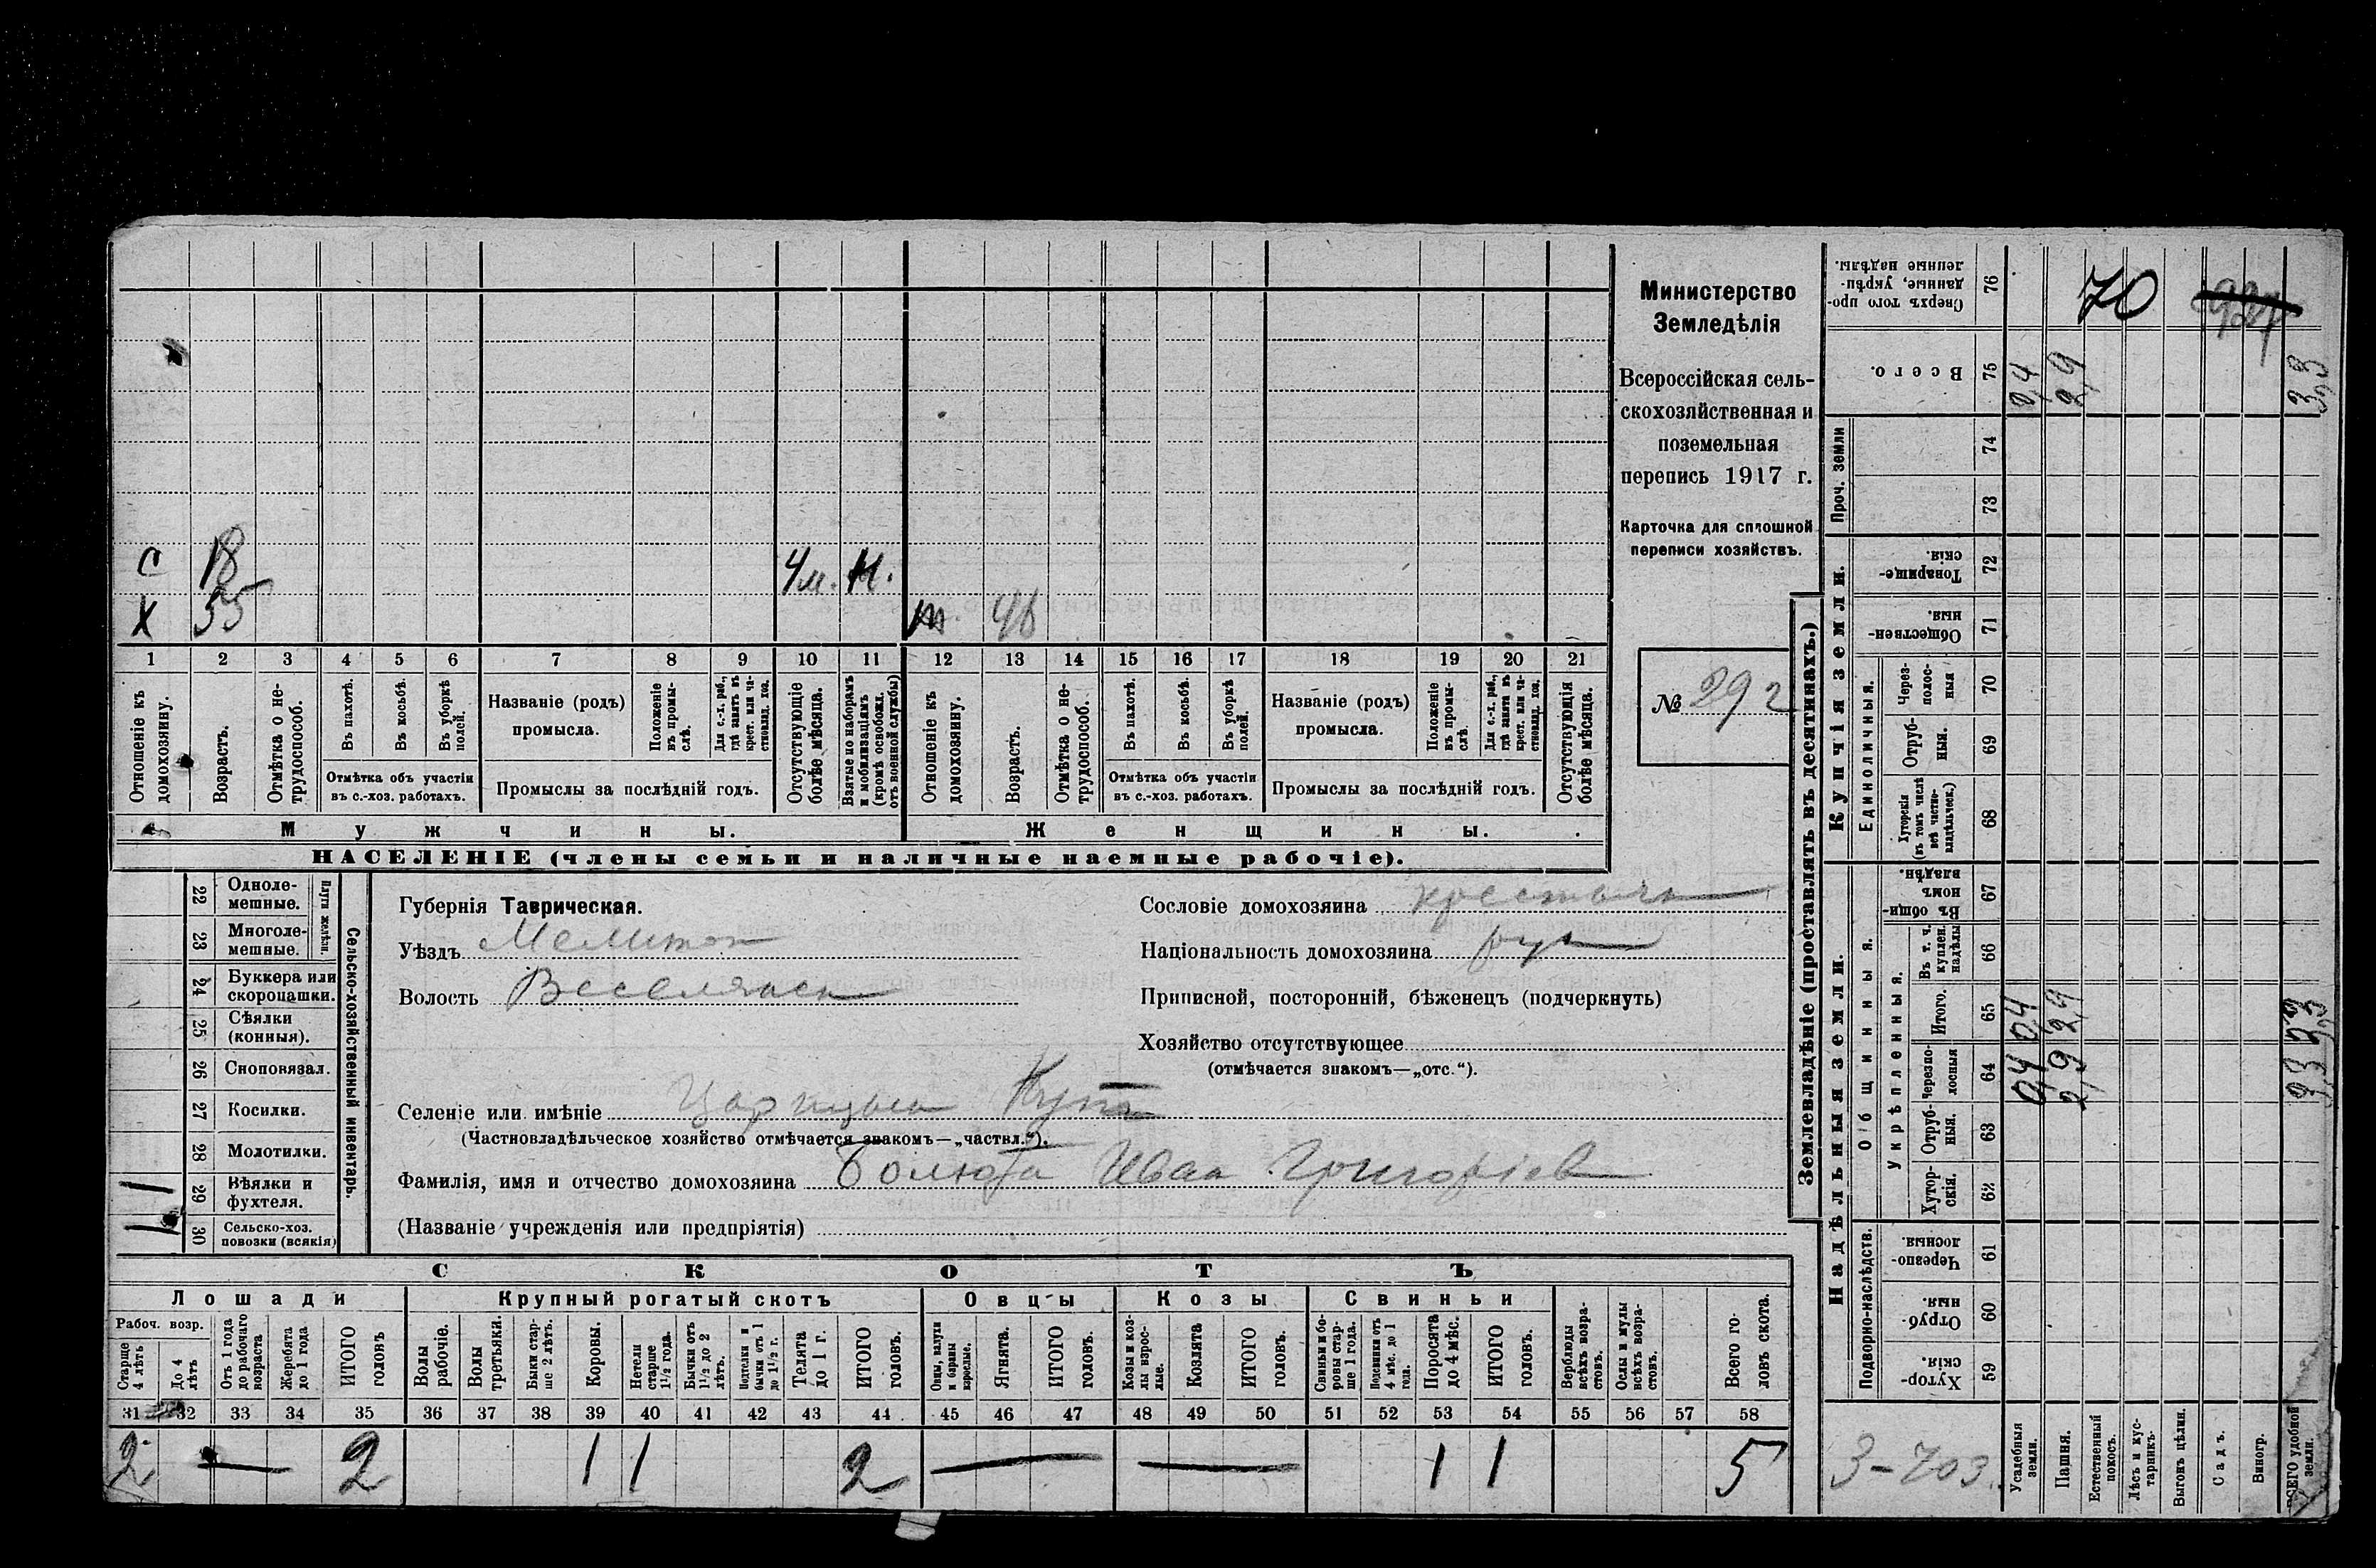 Министерство
Земледѣлія
Всероссійская сель-
скохозяйственная и
поземельная
перепись 1917 г.
Карточка для сплошной
переписи хозяйствъ.
№ 292
С 18 4 м. М.
Х 55 m. 48
1 2 3 4 5 6 7 8 9 10 11 12 13 14 15 16 17 18 19 20 21
Отношеніе къ домохозяину.
Возрастъ.
Отмѣтка о не-трудоспособ.
Въ пахотѣ.
Въ косьбѣ.
Въ уборкѣ полей.
Отмѣтка объ участіи
въ с.-хоз. работахъ.
Названіе (родъ)
промысла.
Положеніе въ промы-слѣ.
Для с.-х. раб., гдѣ занятъ въ крест. или ча-стновлад. хоз.
Промыслы за послѣдній годъ.
Отсутствующіе болѣе мѣсяца.
Взятые по наборамъ и мобилизаціямъ (кромѣ освобожд. отъ военной службы)
Отношеніе къ домохозяину.
Возрастъ.
Отмѣтка о не-трудоспособ.
Въ пахотѣ.
Въ косьбѣ.
Въ уборкѣ полей.
Отмѣтка объ участіи
въ с.-хоз. работахъ.
Названіе (родъ)
промысла.
Положеніе въ промы-слѣ.
Для с.-х. раб., гдѣ занята въ крест. или ча-стновлад. хоз.
Промыслы за послѣдній годъ.
Отсутствующія болѣе мѣсяца.
Мужчины. Женщины.
НАСЕЛЕНІЕ (члены семьи и наличные наемные рабочіе).
Сельско-хозяйственный инвентарь.
Плуги желѣзн.
22 Одноле-мешные.
23 Многоле-мешные.
24 Буккера или скоропашки.
25 Сѣялки (конныя).
26 Сноповязал.
27 Косилки.
28 Молотилки.
29 Вѣялки и фухтеля. 1
30 Сельско-хоз. повозки (всякія) 1
Губернія Таврическая.
Уѣздъ Мелитоп
Волость Веселянск
Сословіе домохозяина крестьян
Національность домохозяина рус
Приписной, посторонній, бѣженецъ (подчеркнуть)
Хозяйство отсутствующее
(отмѣчается знакомъ—„отс.“).
Селеніе или имѣніе Царицын Кут
(Частновладѣльческое хозяйство отмѣчается знакомъ—„частвл.“).
Фамилія, имя и отчество домохозяина Болюта Иван Григоріев
(Названіе учрежденія или предпріятія)
СКОТЪ
Лошади Крупный рогатый скотъ Овцы Козы Свиньи
Рабоч. возр.
Старше 4 лѣтъ
До 4 лѣтъ
Отъ 1 года до рабочаго возраста
Жеребята до 1 года.
ИТОГО головъ
Волы рабочіе.
Волы третьяки.
Быки стар-ше 2 лѣтъ.
Коровы.
Нетели старше 1½ года.
Бычки отъ 1½ до 2 лѣтъ.
Подтелки и бычки отъ 1 до 1½ г.
Телята до 1 г.
ИТОГО головъ.
Овцы, валухи и бараны взрослые.
Ягнята.
ИТОГО головъ.
Козы и коз-лы взрос-лые.
Козлята
ИТОГО головъ.
Свиньи и бо-ровы стар-ше 1 года.
Подсвинки отъ 4 мѣс. до 1 года.
Поросята до 4 мѣс.
ИТОГО головъ.
Верблюды всѣхъ возра-стовъ.
Ослы и мулы всѣхъ возра-стовъ.
Всего го-ловъ скота.
31 32 33 34 35 36 37 38 39 40 41 42 43 44 45 46 47 48 49 50 51 52 53 54 55 56 57 58
2 — 2 1 1 2 — — 1 1 5
Землевладѣніе (проставлять въ десятинахъ.)
Надѣльныя земли. Купчія земли. Проч. земли
Подворно-наслѣдств.
Общинныя.
Укрѣпленныя.
Единоличныя.
59 Хутор-скія.
60 Отруб-ныя.
61 Черезпо-лосныя.
62 Хутор-скія.
63 Отруб-ныя.
64 Черезпо-лосныя
65 Итого.
66 Въ т. ч. куплен. надѣлы
67 Въ общи-номъ владѣн.
68 Хуторскія (въ томъ числѣ всѣ частно-владѣльческ.)
69 Отруб-ныя.
70 Через-полос-ныя
71 Обществен-ныя
72 Товарище-скія.
73
74
75 Всего.
76 Сверхъ того про-данные, укрѣп-ленные надѣлы.
Усадебныя земли. 0,4 0,4 0,4
Пашня. 2,9 2,9 2,9
Естественный покосъ.
Лѣсъ и кус-тарникъ.
Выгонъ цѣлин.
Садъ.
Виногр.
ВСЕГО удобной земли. 3,3 3,3 3,3
70
3-703.